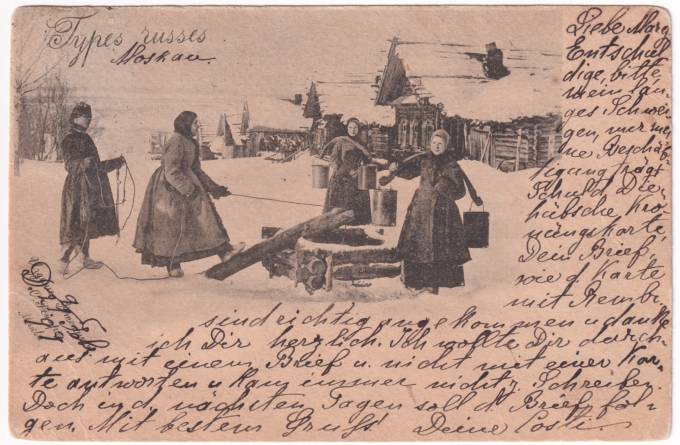 Types russes
Moskau.
Liebe Mara
Entschul-
dige, bitte
mein lan-
ges Schwei-
gen, nur mei-
ne Beschäf-
tigung trägt
Schuld. Die
hübsche Krö-
nungskarte,
Dein Brief,
wie d. Karte
mit Rembr.
sind richtig angekommen u. danke
ich Dir herzlich. Ich wollte Dir durch-
aus mit einem Brief u. nicht mit einer Kar-
te antworten u. kam immer nicht z. Schreiben.
Doch in d. nächsten Tagen soll d. Brief fol-
gen. Mit bestem Gruss! Deine